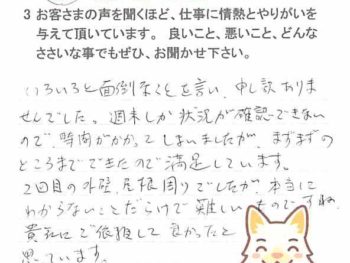 3 お客さまの声を聞くほど、仕事に情熱とやりがいを
与えて頂いています。 良いこと、悪いこと、どんな
ささいな事でもぜひ、お聞かせ下さい。
いろいろと面倒なことを言い、申し訳ありま
せんでした。週末しか状況が確認できない
ので、時間がかかってしまいましたが、まずまずの
ところまでできたので満足しています。
2回目の外壁、屋根周りでしたが、本当に
わからないことだらけで難しいものですね。
貴社にご依頼して良かったと
思ています。